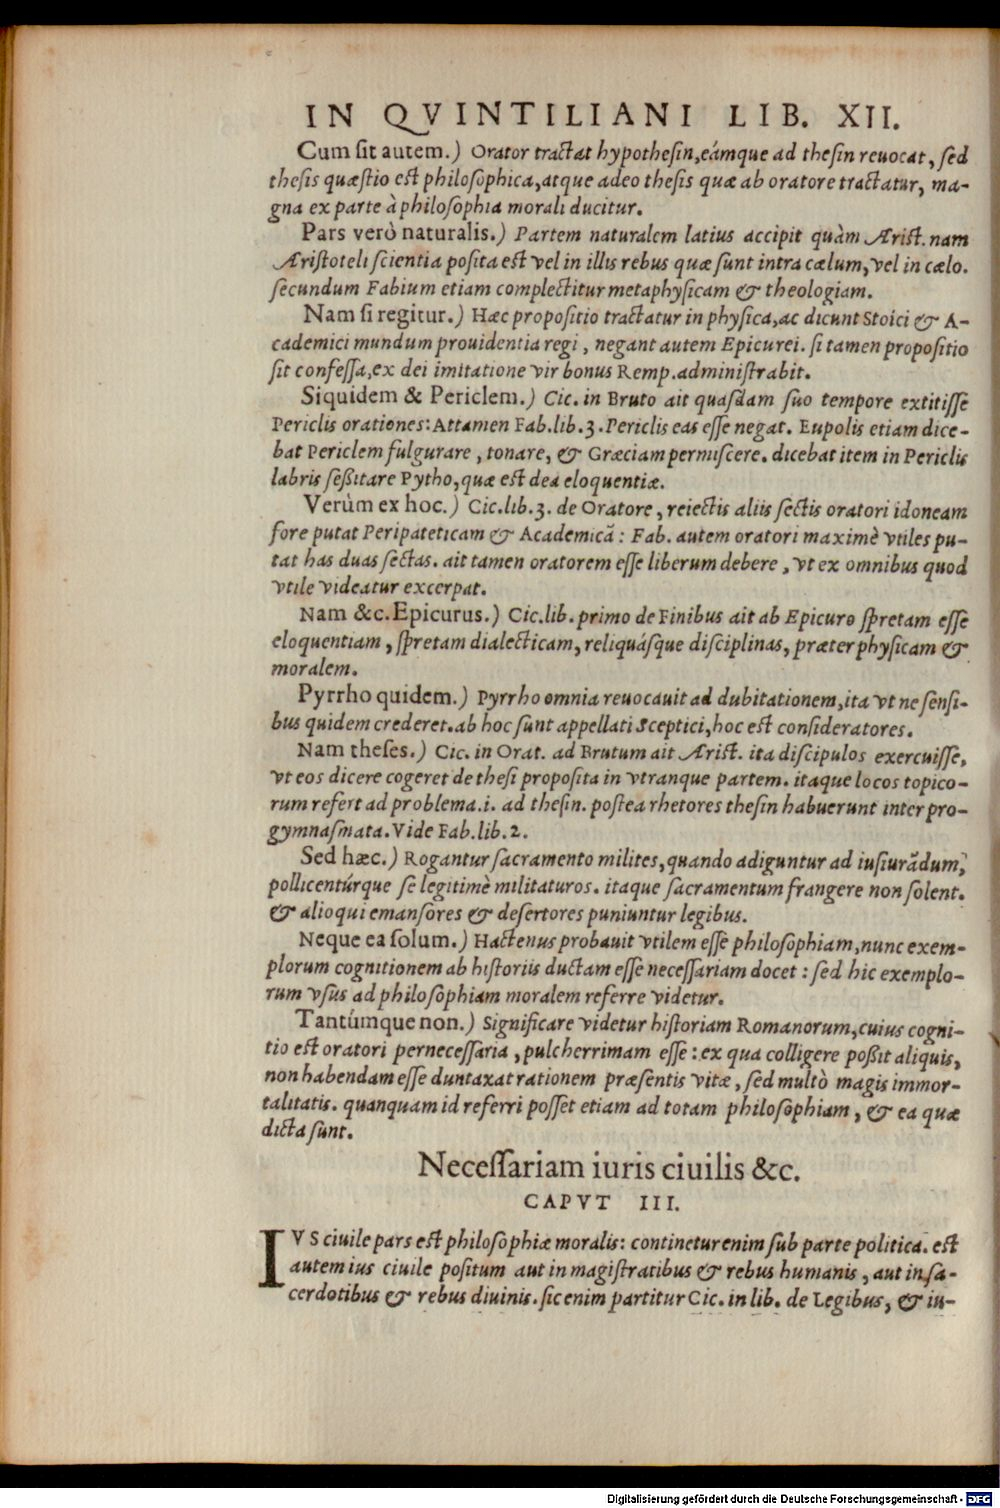 IN QVINTILIANI LIB. XII.
Cum sit autem.) Orator tractat hypothesin,eámque ad thesin reuocat, sed
thesis quæstio est philosophica,atque adeo thesis quæ ab oratore tractatur, ma-
gna ex parte à philosophia morali ducitur.
Pars verò naturalis.) Partem naturalem latius accipit quàm Arist. nam
Aristoteli scientia posita est vel in illis rebus quæ sunt intra cælum, vel in cælo.
secundum Fabium etiam complectitur metaphysicam & theologiam.
Nam si regitur.) Hæc propositio tractatur in physica,ac dicunt Stoici & A-
cademici mundum prouidentia regi, negant autem Epicurei. si tamen propositio
sit confessa,ex dei imitatione vir bonus Remp.administrabit.
Siquidem & Periclem.) Cic. in Bruto ait quasdam suo tempore extitisse
Periclis orationes: Attamen Fab.lib. 3. Periclis eas esse negat. Eupolis etiam dice-
bat Periclem fulgurare, tonare, & Græciam permiscere. dicebat item in Periclis
labris seßitare Pytho,quæ est dea eloquentiæ.
Verùm ex hoc.) Cic.lib. 3. de Oratore, reiectis aliis sectis oratori idoneam
fore putat Peripateticam & Academicã: Fab. autem oratori maximè vtiles pu-
tat has duas sectas. ait tamen oratorem esse liberum debere, vt ex omnibus quod
vtile videatur excerpat.
Nam &c. Epicurus.) Cic.lib. primo de Finibus ait ab Epicuro spretam esse
eloquentiam, spretam dialecticam, reliquásque disciplinas, præter physicam &
moralem.
Pyrrho quidem.) Pyrrho omnia reuocauit ad dubitationem,ita vt ne sensi-
bus quidem crederet.ab hoc sunt appellati Sceptici,hoc est consideratores.
Nam theses.) Cic. in Orat. ad Brutum ait Arist. ita discipulos exercuisse,
vt eos dicere cogeret de thesi proposita in vtranque partem. itaque locos topico-
rum refert ad problema.i. ad thesin. postea rhetores thesin habuerunt inter pro-
gymnasmata. Vide Fab.lib. 2.
Sed hæc.) Rogantur sacramento milites,quando adiguntur ad iusiurãdum,
pollicentúrque se legitimè militaturos. itaque sacramentum frangere non solent.
& alioqui emansores & desertores puniuntur legibus.
Neque ea solum.) Hactenus probauit vtilem esse philosophiam,nunc exem-
plorum cognitionem ab historiis ductam esse necessariam docet: sed hic exemplo-
rum vsus ad philosophiam moralem referre videtur.
Tantúmque non.) Significare videtur historiam Romanorum,cuius cogni-
tio est oratori pernecessaria, pulcherrimam esse: ex qua colligere poßit aliquis,
non habendam esse duntaxat rationem præsentis vitæ, sed multò magis immor-
talitatis. quanquam id referri posset etiam ad totam philosophiam, & ea quæ
dicta sunt.
Necessariam iuris ciuilis &c.
CAPVT III.
IVS ciuile pars est philosophiæ moralis: continetur enim sub parte politica. est
autem ius ciuile positum aut in magistratibus & rebus humanis, aut in sa-
cerdotibus & rebus diuinis. sic enim partitur Cic. in lib. de Legibus, & iu-
Digitalisierung gefördert durch die Deutsche Forschungsgemeinschaft - DFG